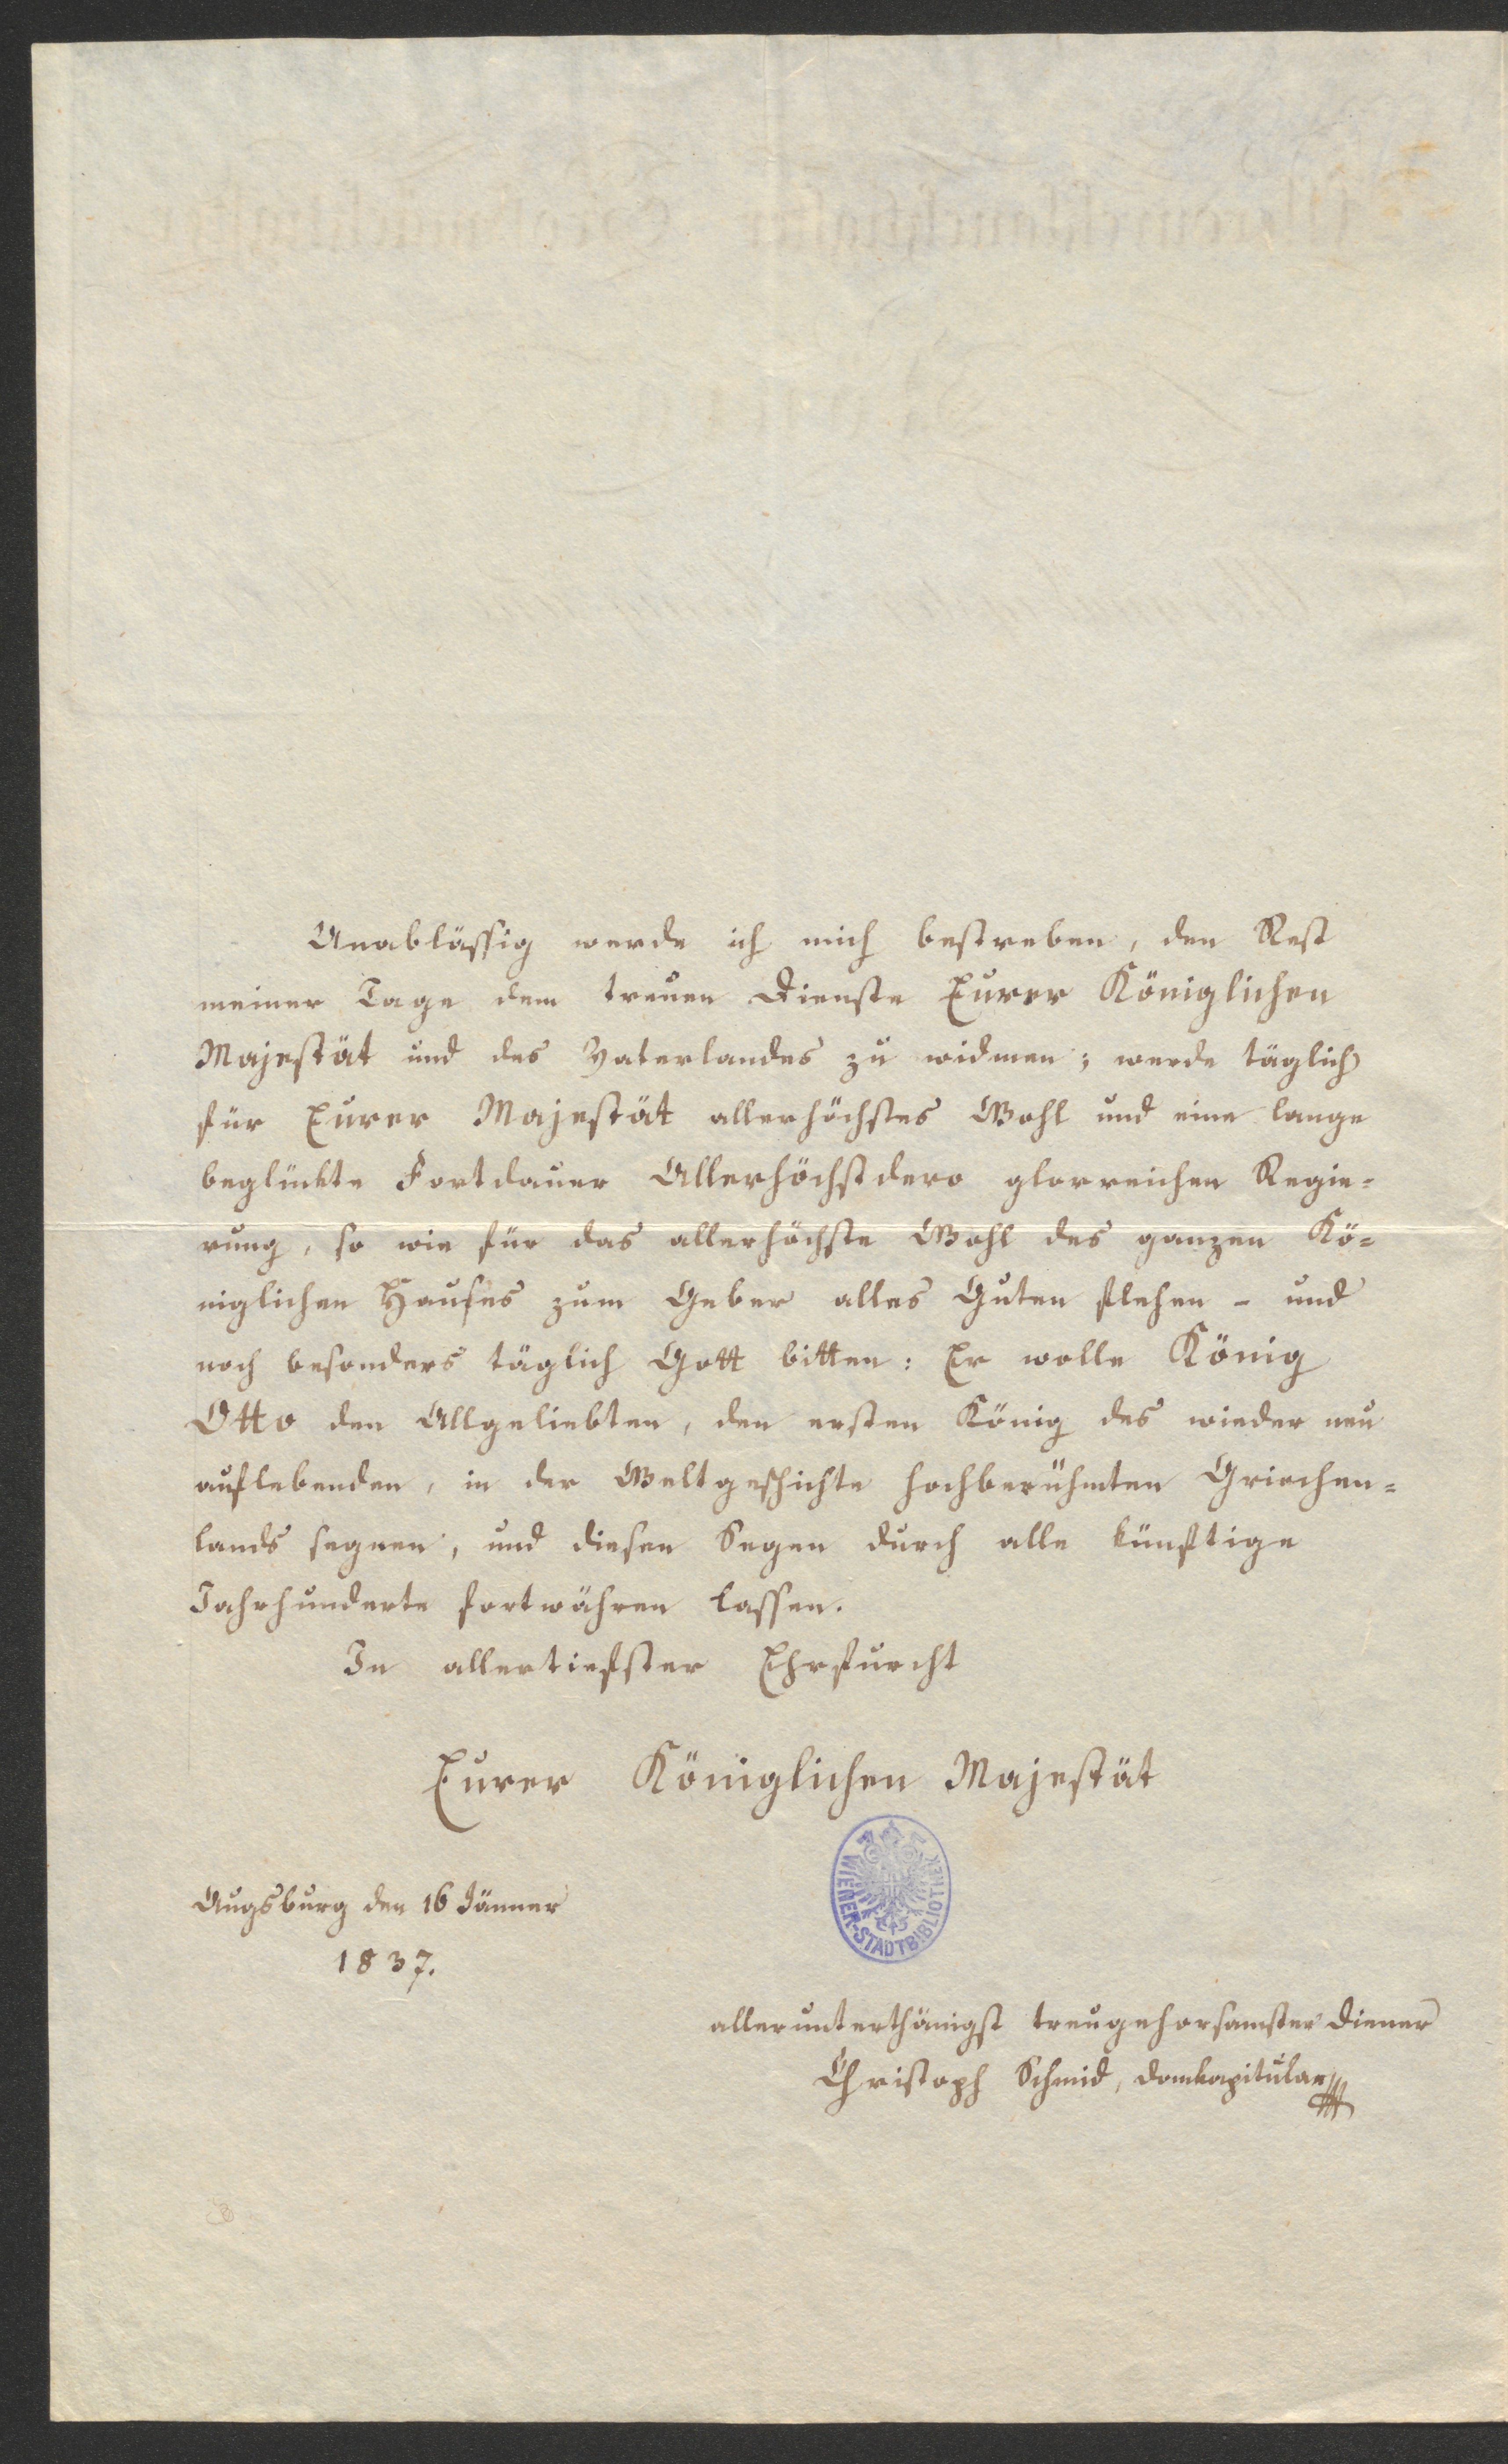 Unablässig werde ich mich bestreben, den Rest
meiner Tage dem treuen Dienste Eurer Königlichen
Majestät und des Vaterlandes zu widmen; werde täglich
für Eurer Majestät allerhöchstes Wohl und eine lange
beglückte Fortdauer Allerhöchstdero glorreichen Regie=
rung, so wie für das allerhöchste Wohl des ganzen Kö=
niglichen Hauses zum Geber alles Guten flehen - und
noch besonders täglich Gott bitten: Er wolle König
Otto den Allgeliebten, den ersten König des wieder neu
auflebenden, in der Weltgeschichte hochberühmten Griechen=
lands segnen, und diesen Segen durch alle künftige
Jahrhunderte fortwähren lassen.
In allertiefster Ehrfurcht
Eurer Königlichen Majestät
WIENER-STADTBIBLIOTHEK
Augsburg den 16 Jänner
1837.
allerunterthänigst treugehorsamster Diener
Christoph Schmid, Domkapitular